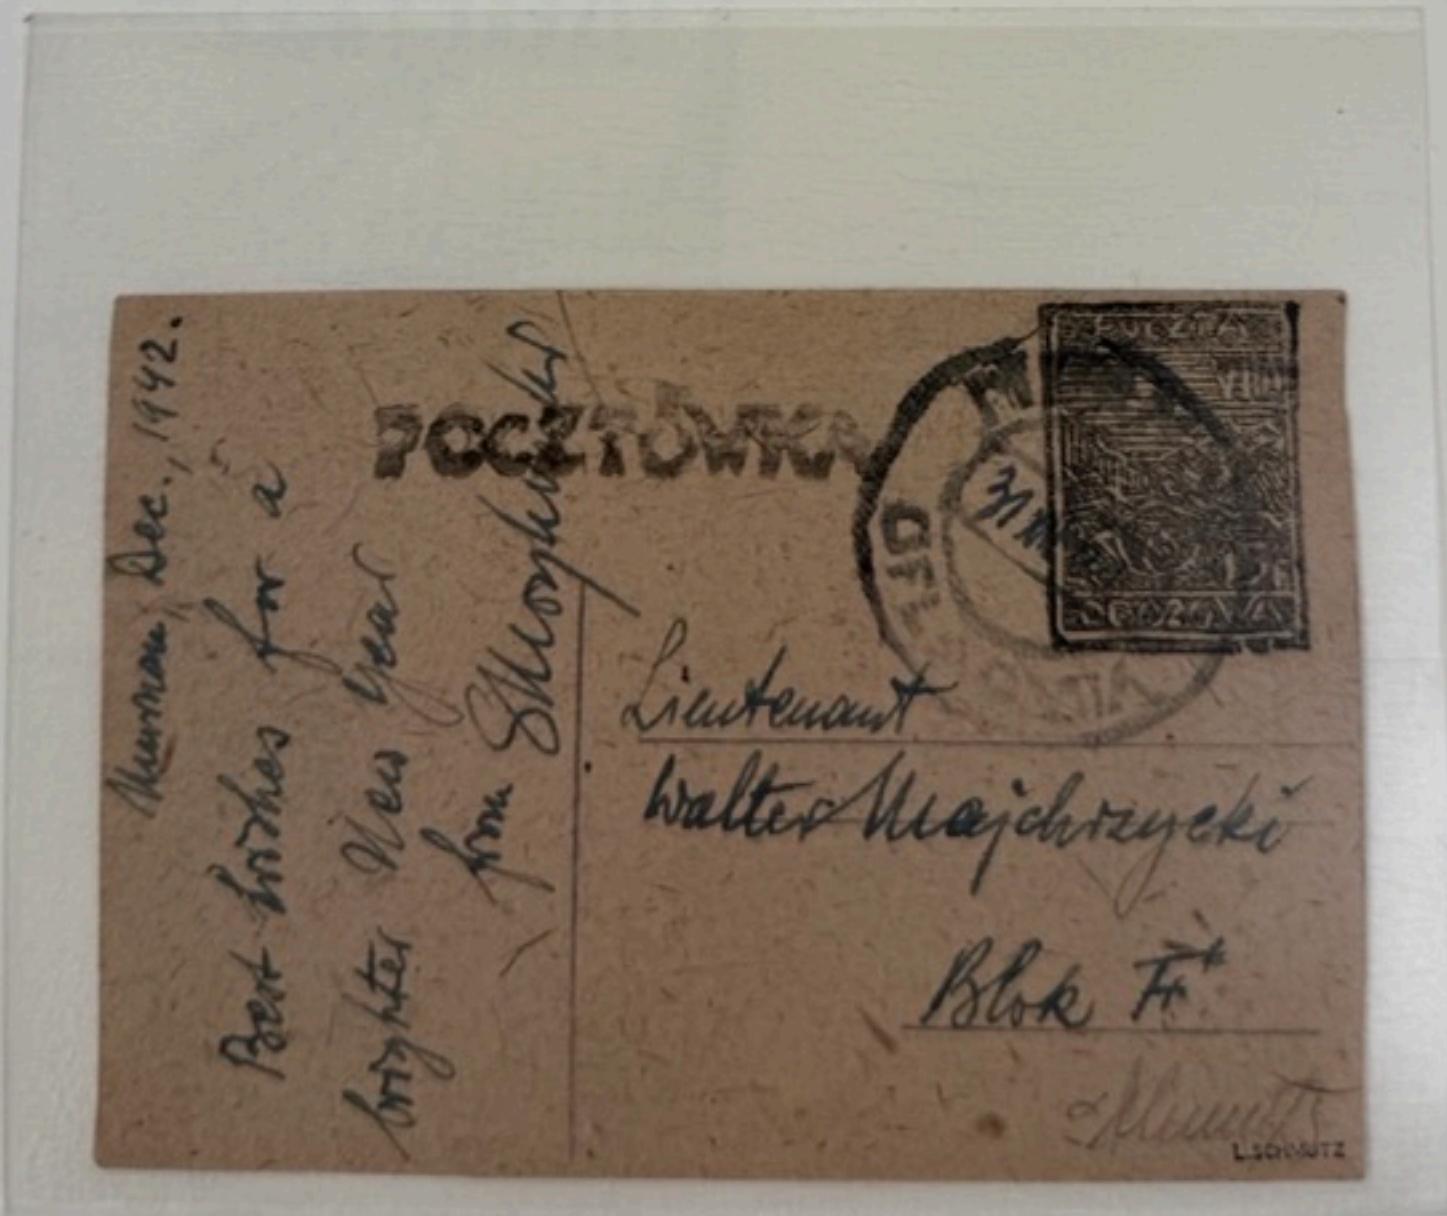 Murnau, Dec., 1942.
Best wishes for a
brighter New Year
from
POCZTÓWKA
POCZTA
OBOZOWA
31 XII
OFLAG VIIA
Lieutenant
Walter Majchrzycki
Blok F
L. SCHMUTZ